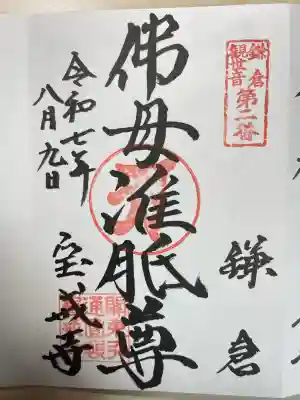 鎌倉
観世音
第二番
鎌倉
佛母准胝尊
令和七年
八月九日
宝戒寺